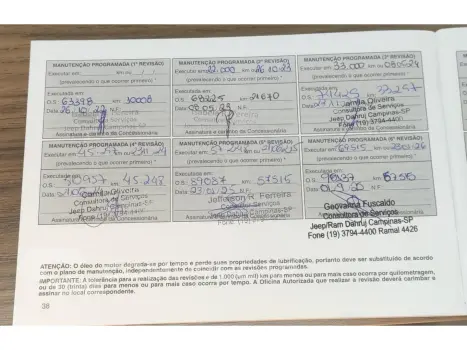 MANUTENÇÃO PROGRAMADA (1ª REVISÃO)
Executar em: km ou / /
(prevalecendo o que ocorrer primeiro) *
Executada em:
O.S. 63398 km 10008
Data 26.10.22 N.F.
Assinatura e carimbo da Concessionária
MANUTENÇÃO PROGRAMADA (2ª REVISÃO)
Executar em 22.000 km ou 26.10.23
(prevalecendo o que ocorrer primeiro) *
Executada em:
O.S. 68225 km 21670
Data 08.05.23 N.F.
Assinatura e carimbo da Concessionária
MANUTENÇÃO PROGRAMADA (3ª REVISÃO)
Executar em 33.000 km ou
(prevalecendo o que ocorrer primeiro) *
Executada em:
O.S. km 33257
Data
Jamila Oliveira
Consultora de Serviços
Jeep Dahruj Campinas-SP
Fone (19) 3794-4400
Assinatura e carimbo da Concessionária
MANUTENÇÃO PROGRAMADA (4ª REVISÃO)
Executar em km ou
(prevalecendo o que ocorrer primeiro) *
Executada em:
O.S. km 45.248
Data
Oliveira
Consultora de Serviços
Jeep Dahruj Campinas-SP
Fone (19) 3794-4400
MANUTENÇÃO PROGRAMADA (5ª REVISÃO)
Executar em km ou
(prevalecendo o que ocorrer primeiro) *
Executada em:
O.S. 89087 km 57515
Data 23.01.25 N.F.
Jefferson R Ferreira
Consultor de Serviços
Jeep Dahruj Campinas-SP
Fone (19) 3794-4400
MANUTENÇÃO PROGRAMADA (6ª REVISÃO)
Executar em 69515 km ou 23.01.26
(prevalecendo o que ocorrer primeiro) *
Executada em:
O.S. km
Data N.F.
Geovanna Fuscaldo
Consultora de Serviços
Jeep/Ram Dahruj Campinas-SP
Fone (19) 3794-4400 Ramal 4426
ATENÇÃO: O óleo do motor degrada-se por tempo e perde suas propriedades de lubrificação, portanto deve ser substituído de acordo
com o plano de manutenção, independentemente de coincidir com as revisões programadas.
IMPORTANTE: A tolerância para a realização das revisões é de 1.000 (um mil) km para menos ou para mais caso ocorra por quilometragem,
ou de 30 (trinta) dias para menos ou para mais caso ocorra por tempo. A Oficina Autorizada que realizar a revisão deverá carimbar e
assinar no local correspondente.
38